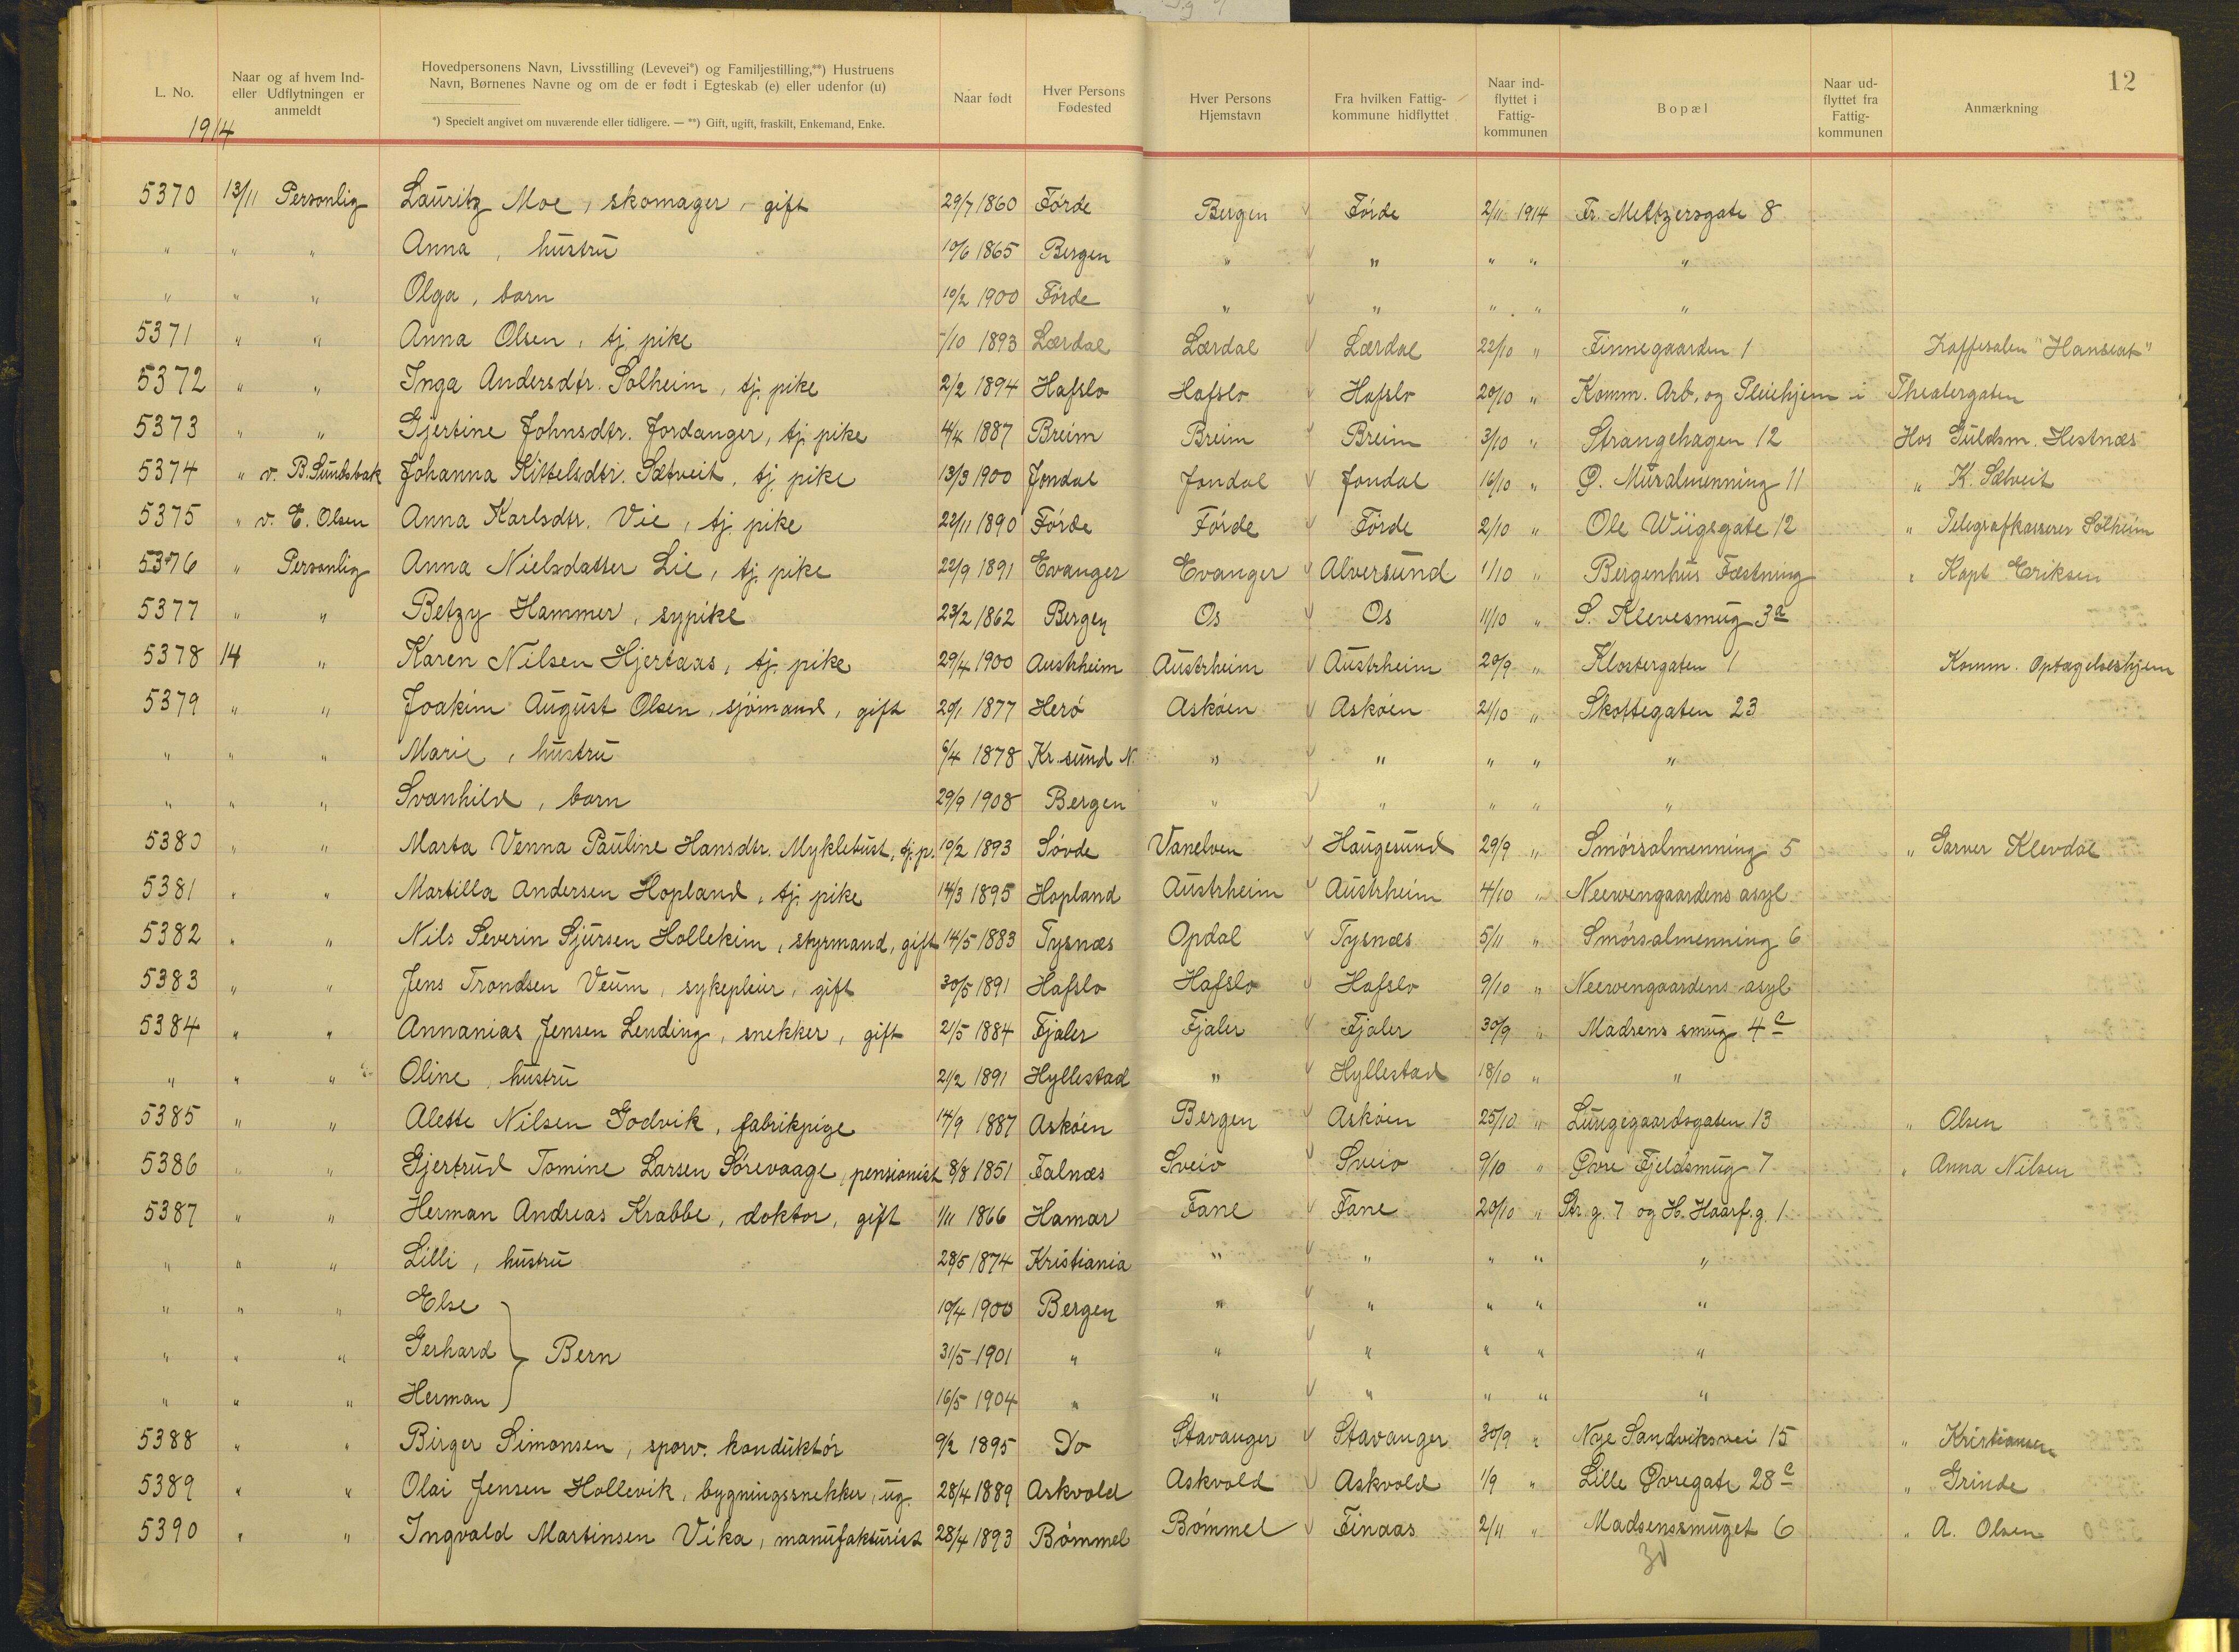 12
L. No.
Naar og af hvem Ind- eller Udflytningen er anmeldt
Hovedpersonens Navn, Livsstilling (Levevei*) og Familjestilling,**) Hustruens
Navn, Børnenes Navne og om de er født i Egteskab (e) eller udenfor (u)
*) Specielt angivet om nuværende eller tidligere. — **) Gift, ugift, fraskilt, Enkemand, Enke.
Naar født
Hver Persons Fødested
Hver Persons Hjemstavn
Fra hvilken Fattig- kommune hidflyttet
Naar ind- flyttet i Fattig- kommunen
Bopæl
Naar ud- flyttet fra Fattig- kommunen
Anmærkning
1914
5370 13/11 Personlig Lauritz Moe, skomager, gift 29/7 1860 Førde Bergen Førde 2/11 1914 Fr. Meltzersgate 8
" " " Anna, hustru 10/6 1865 Bergen " " " " "
" " " Olga, barn 10/2 1900 Førde " " " " "
5371 " " Anna Olsen, tj. pike -/10 1893 Lærdal Lærdal Lærdal 22/10 " Finnegaarden 1 Kaffesalen "Hanseat"
5372 " " Inga Andersdtr. Solheim, tj. pike 2/2 1894 Hafslo Hafslo Hafslo 20/10 " Komm. Arb. og Pleiehjem i Theatergaten
5373 " " Gjertine Johnsdtr. Jordanger, tj. pike 4/4 1887 Breim Breim Breim 3/10 " Strangehagen 12 Hos Guldsm. Hestnæs
5374 " v. B. Sundsbak Johanna Kittelsdtr. Sætveit, tj. pike 13/3 1900 Jondal Jondal Jondal 16/10 " Ø. Muralmenning 11 " K. Sætveit
5375 " v. E. Olsen Anna Karlsdtr. Vie, tj. pike 22/11 1890 Førde Førde Førde 2/10 " Ole Wiigsgate 12 " Telegrafkasserer Solheim
5376 " Personlig Anna Nielsdatter Lie, tj. pike 22/9 1891 Evanger Evanger Alversund 1/10 " Bergenhus Fæstning " Kapt Eriksen
5377 " " Betzy Hammer, sypike 23/2 1862 Bergen Os Os 11/10 " S. Klevesmug 3a
5378 14 " Karen Nilsen Hjertaas, tj. pike 29/4 1900 Austrheim Austrheim Austrheim 20/9 " Klostergaten 1 Komm. Optagelseshjem
5379 " " Joakim August Olsen, sjømand, gift 20/1 1877 Herø Askøen Askøen 21/10 " Skottegaten 23
" " " Marie, hustru 6/4 1878 Kr. sund N. " " " " "
" " " Svanhild, barn 29/9 1908 Bergen " " " " "
5380 " " Marta Venna Pauline Hansdtr. Myklebust, tj. p. 10/2 1893 Søvde Vanelven Haugesund 29/9 " Smørsalmenning 5 " Garver Klevdal
5381 " " Martilla Andersen Hopland, tj. pike 14/3 1895 Hopland Austrheim Austrheim 4/10 " Neevengaardens asyl
5382 " " Nils Severin Sjursen Hollekim, styrmand, gift 14/5 1883 Tysnæs Opdal Tysnæs 5/11 " Smørsalmenning 6
5383 " " Jens Trondsen Veum, sykepleier, gift 30/5 1891 Hafslo Hafslo Hafslo 9/10 " Neevengaardens asyl
5384 " " Annanias Jensen Lending, snekker, gift 21/5 1884 Fjaler Fjaler Fjaler 30/9 " Madsens smug 4c
" " " Oline, hustru 21/2 1891 Hyllestad " Hyllestad 18/10 " "
5385 " " Alette Nilsen Godvik, fabrikpige 14/9 1887 Askøen Bergen Askøen 25/10 " Lungegaardsgaten 13 " Olsen
5386 " " Gjertrud Tomine Larsen Sørevaage, pensionist 8/8 1851 Falnæs Sveio Sveio 9/10 " Øvre Fjeldsmug 7 " Anna Nilsen
5387 " " Herman Andreas Krabbe, doktor, gift 1/11 1866 Hamar Fane Fane 20/10 " Str. g. 7 og H. Haarf. g 1
" " " Lilli, hustru 28/5 1874 Kristiania " " " " "
" " " Else 10/4 1900 Bergen " " " " "
" " " Gerhard } Bern 31/5 1901 " " " " " "
" " " Herman 16/5 1904 " " " " " "
5388 " " Birger Simonsen, sporv. konduktør 9/2 1895 Do Stavanger Stavanger 30/9 " Nye Sandviksvei 15 " Kristiansen
5389 " " Olai Jensen Hollevik, bygningssnekker, ug. 28/4 1889 Askvold Askvold Askvold 1/9 " Lille Øvregate 28c " Grinde
5390 " " Ingvald Martinsen Vika, manufakturist 28/4 1893 Bømmel Bømmel Finaas 2/11 " Madsenssmuget 6 " A. Olsen